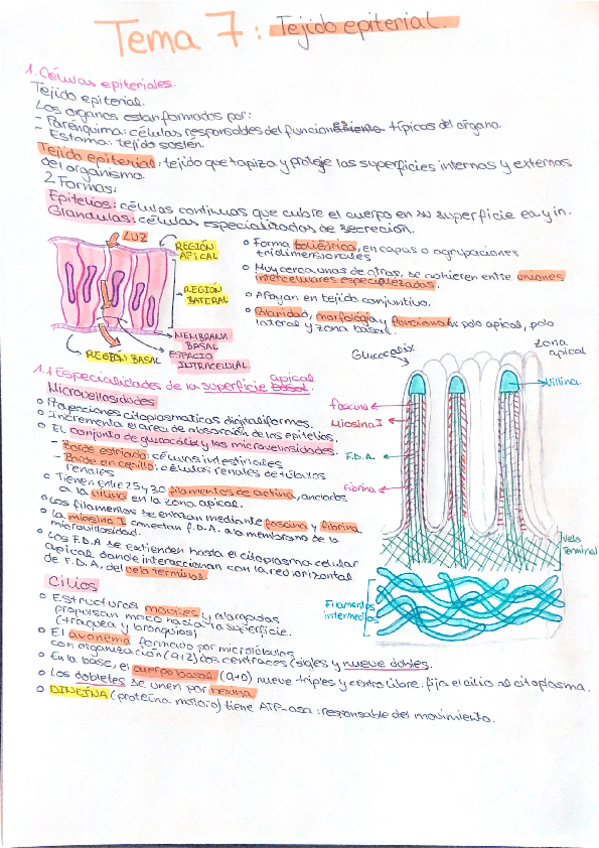 Tema 7: Tejido epiterial.
1. Células epiteriales.
Tejido epiterial.
Los organos estan formados por:
- Parénquima: células responsables del funcion típicos del órgano.
- Estoma: tejido sostén.
Tejido epiterial: tejido que tapiza y proteje las superficies internas y externas
del organismo.
2 Formas:
Epitelios: células continuas que cubre el cuerpo en su superficie ex y in.
Glandulas: células especializadas de secreción.
LUZ
REGIÓN APICAL
REGIÓN LATERAL
MEMBRANA BASAL
ESPACIO INTRACELULAR
REGIÓN BASAL
Forma poliédrica, en capas o agrupaciones
tridimensionales
Muy cerca unas de otras, se adhieren entre uniones
intercelulares especializadas.
Apoyan en tejido conjuntivo.
Polaridad, morfología y funcional: polo apical, polo
lateral y zona basal.
1.1 Especialidades de la superficie apical basal.
Microvellosidades
Proyecciones citoplasmaticas digitaliformes.
Incrementa el area de absorción de los epitelios.
El conjunto de glucocálix y las microvellosidades:
- Borde estriado: células intestiniales
- Borde en cepillo: células renales de túbulos
renales
Tienen entre 25 y 30 filamentos de actina, anclados
a la vilina en la zona apical.
Los filamentos se enlazan mediante fascina y fibrina
La miosina I conectan f.D.A. a la membrana de la
microvillosidad.
Los F.D.A se extienden hasta el citoplasma celular
apical donde interaccionan con la red horizontal
de F.D.A. del velo terminal
Glucocalix
Zona apical
Villina.
fascina
Miosina I
F.D.A.
Fibrina
Velo Terminal
Filamentos intermedios
Cilios
Estructuras moviles y alargadas
propulsan moco hacia la superficie.
(traquea y bronquios)
El axonema formado por microtúbulos
con organización (9+2) dos centrales (sigles y nueve dobles.
En la base, el cuerpo basal (9+0) nueve triples y centro libre. fija el cilio al citoplasma.
Los dobletes se unen por nexina
DINEINA (proteína motora) tiene ATP-asa: responsable del movimiento.